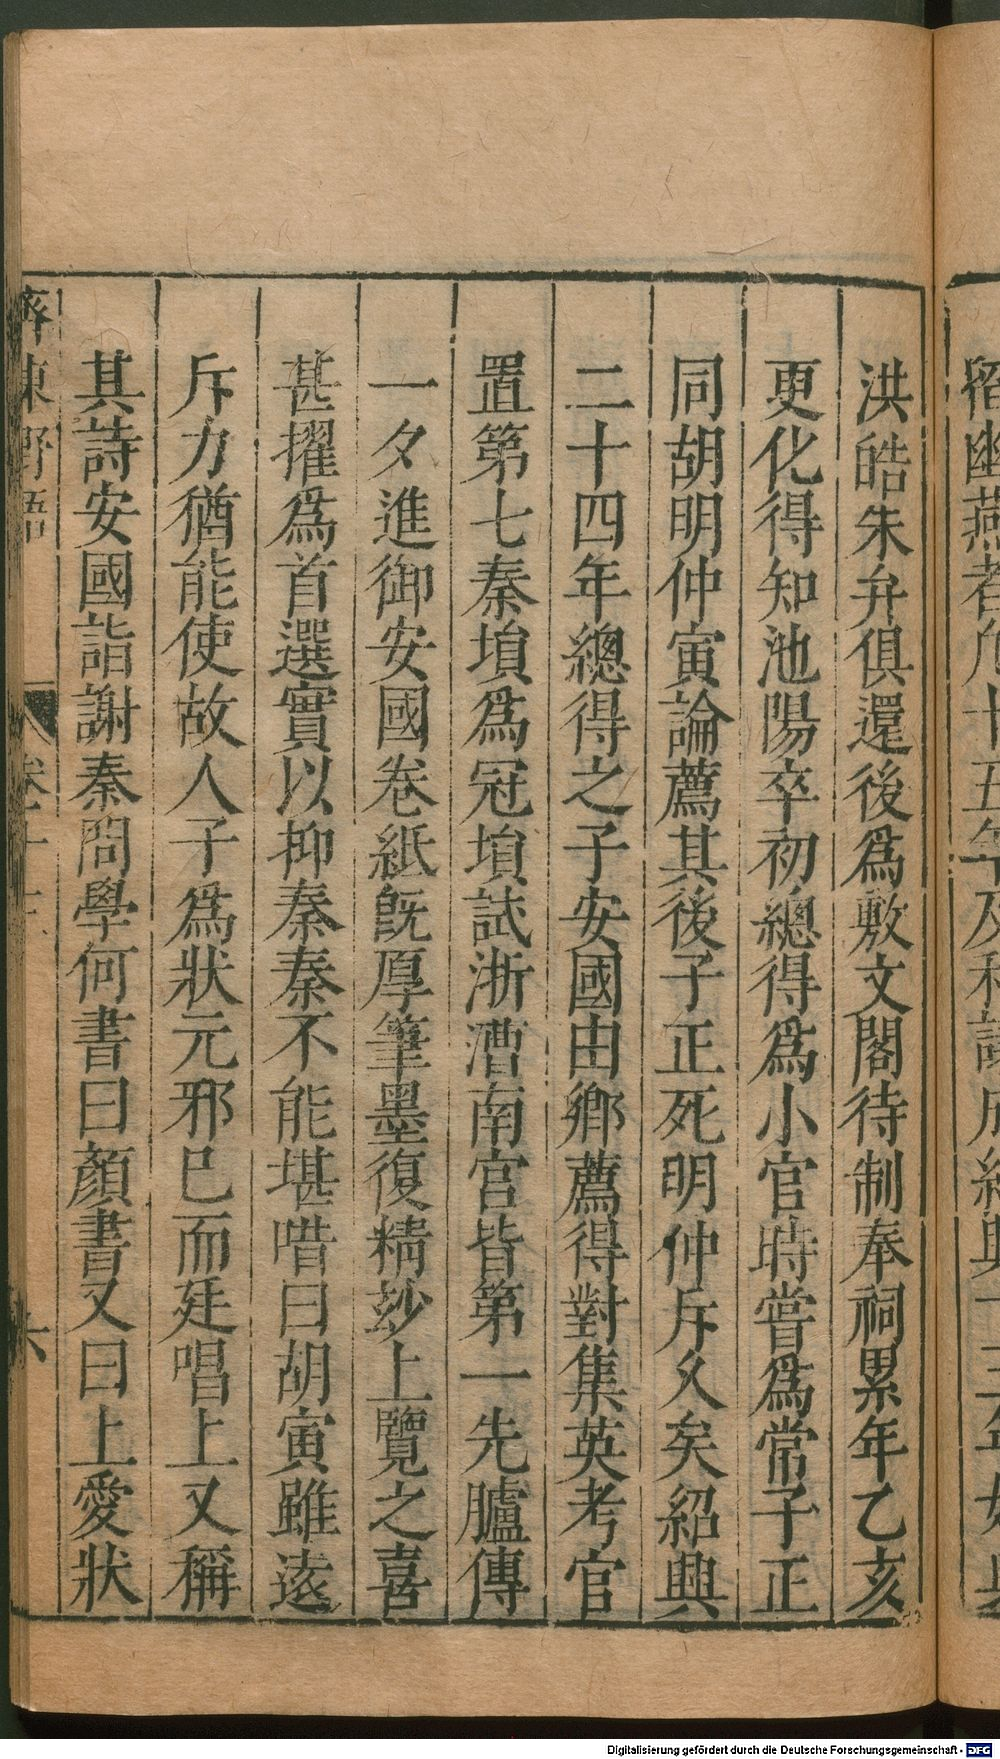 洪皓朱弁俱還後爲敷文閣待制奉祠累年乙亥
更化得知池陽卒初總得爲小官時嘗爲常子正
同胡明仲寅論薦其後子正死明仲斥久矣紹興
二十四年總得之子安國由鄉薦得對集英考官
置第七秦塤爲冠塤試浙漕南宫皆第一先臚傳
一夕進御安國卷紙旣厚筆墨復精玅上覽之喜
甚擢爲首選實以抑秦秦不能堪唶曰胡寅雖遠
斥力猶能使故人子爲狀元邪已而廷唱上又稱
其詩安國詣謝秦問學何書曰顏書又曰上愛狀
齊東野語
六
Digitalisierung gefördert durch die Deutsche Forschungsgemeinschaft - DFG